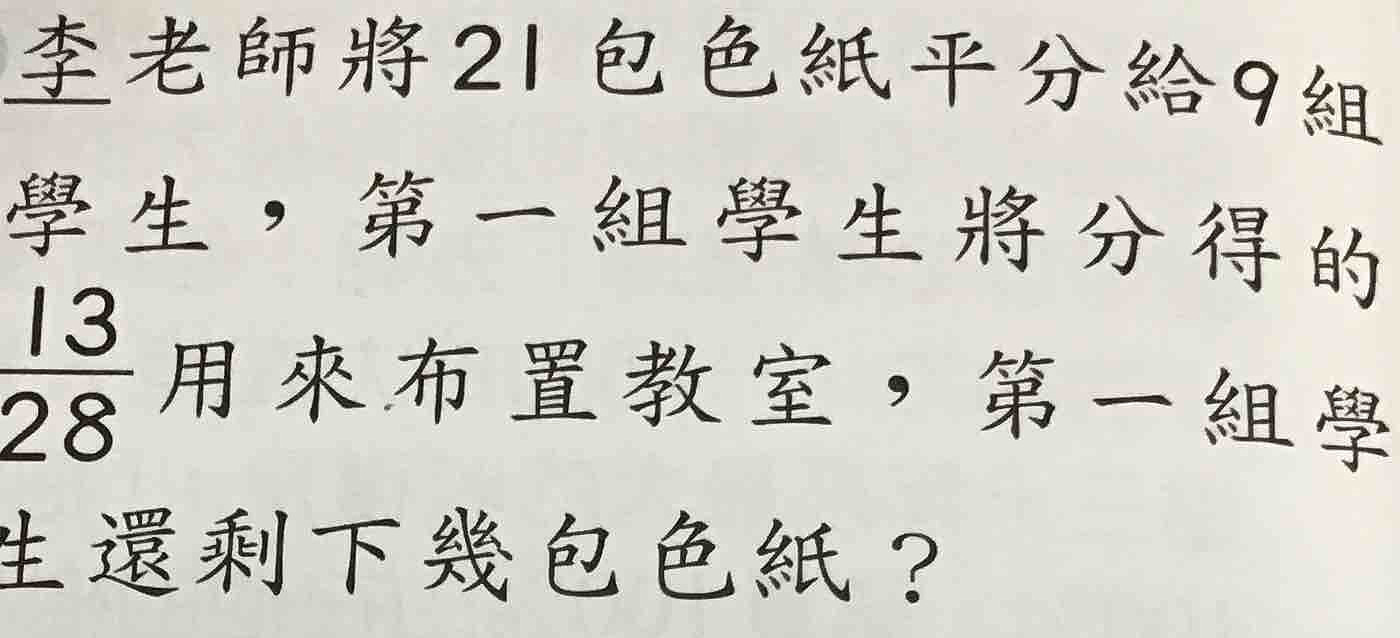 李老師將21包色紙平分給9組
學生，第一組學生將分得的
13/28用來布置教室，第一組學
生還剩下幾包色紙？